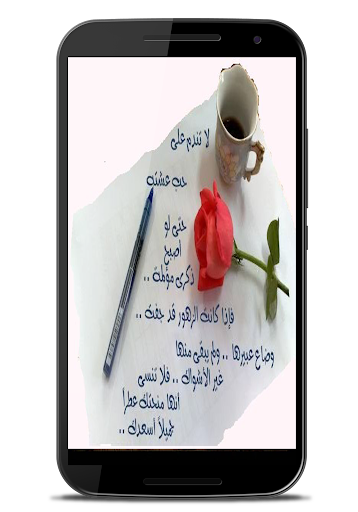 لا تندم على
حب عشته
حتى لو
اصبح
ذكرى مؤلمة ..
فإذا كانت الزهور قد جفت ..
وضاع عبيرها .. ولم يبقى منها
غير الأشواك .. فلا تنسى
أنها منحتك عطرا
جميلاً أسعدك ..